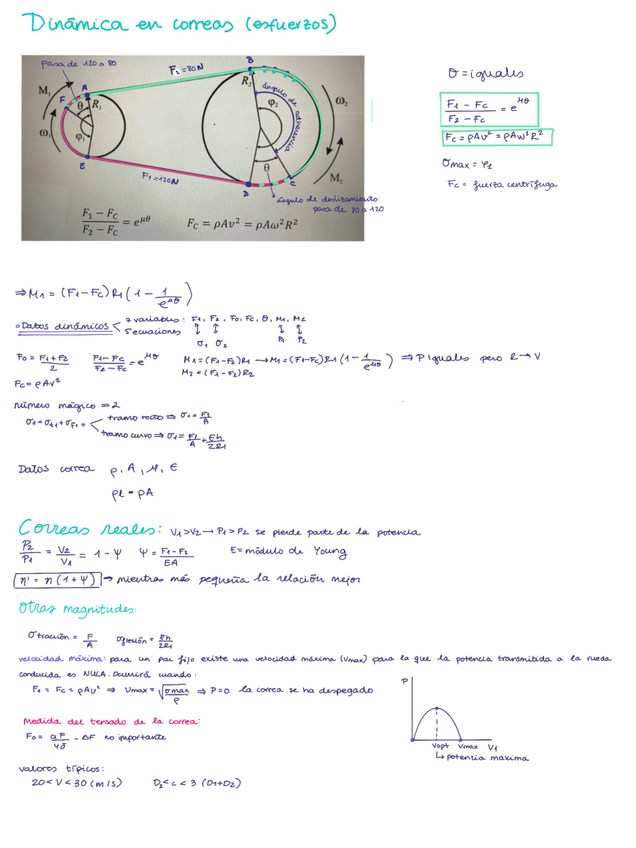 Dinámica en correas (esfuerzos)
pasa de 120 a 80
F2=80N
A
B
M1
F
θ
R1
φ1
ω1
E
R2
φ2
ángulo de adherencia
ω2
θ
C
M2
D
F1=120N
ángulo de deslizamiento
pasa de 80 a 120
F1 − FC / F2 − FC = e^μθ
FC = ρAv² = ρAω²R²
θ = iguales
F1 - Fc / F2 - Fc = e^μθ
Fc = ρAv² = ρAω²R²
σmax = φ1
Fc = fuerza centrífuga
⇒ M1 = (F1-Fc) R1 (1 - 1/e^μθ)
Datos dinámicos
7 variables: F1, F2, F0, Fc, θ, M1, M2
5 ecuaciones
σ1 σ2
P1 P2
F0 = F1+F2 / 2
F1-Fc / F2-Fc = e^μθ
M1 = (F1-F2)R1 → M1 = (F1-Fc)R1 (1 - 1/e^μθ) ⇒ P iguales pero R → V
M2 = (F1-F2)R2
Fc = ρAv²
número mágico = 2
σ1 = σt1 + σF1 =
tramo recto ⇒ σ1 = F1/A
tramo curvo ⇒ σ1 = F1/A + Eh/2R1
Datos correa ρ, A, μ, E
ρl = ρA
Correas reales: V1 > V2 → P1 > P2 se pierde parte de la potencia
P2/P1 = V2/V1 = 1 - Ψ Ψ = F1-F2 / EA E = módulo de Young
η' = η (1+Ψ) → mientras más pequeña la relación mejor
Otras magnitudes:
σtracción = F/A σflexión = Eh/2R1
velocidad máxima: para un par fijo existe una velocidad máxima (Vmax) para la que la potencia transmitida a la rueda
conducida es NULA. Ocurrirá cuando:
F1 = Fc = ρAv² ⇒ Vmax = √σmax/ρ ⇒ P=0 la correa se ha despegado
Medida del tensado de la correa:
F0 = aF/4δ - ΔF no importante
valores típicos:
20 < V < 30 (m/s) D2 < c < 3 (D1+D2)
P
Vopt Vmax V1
↳ potencia máxima